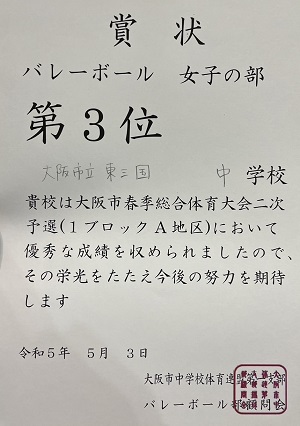 賞状
バレーボール 女子の部
第3位
大阪市立東三国 中学校
貴校は大阪市春季総合体育大会二次
予選(1ブロックA地区)において
優秀な成績を収められましたので、
その栄光をたたえ今後の努力を期待
します
令和5年 5月 3日
大阪市中学校体育連盟第1支部
バレーボール部顧問会